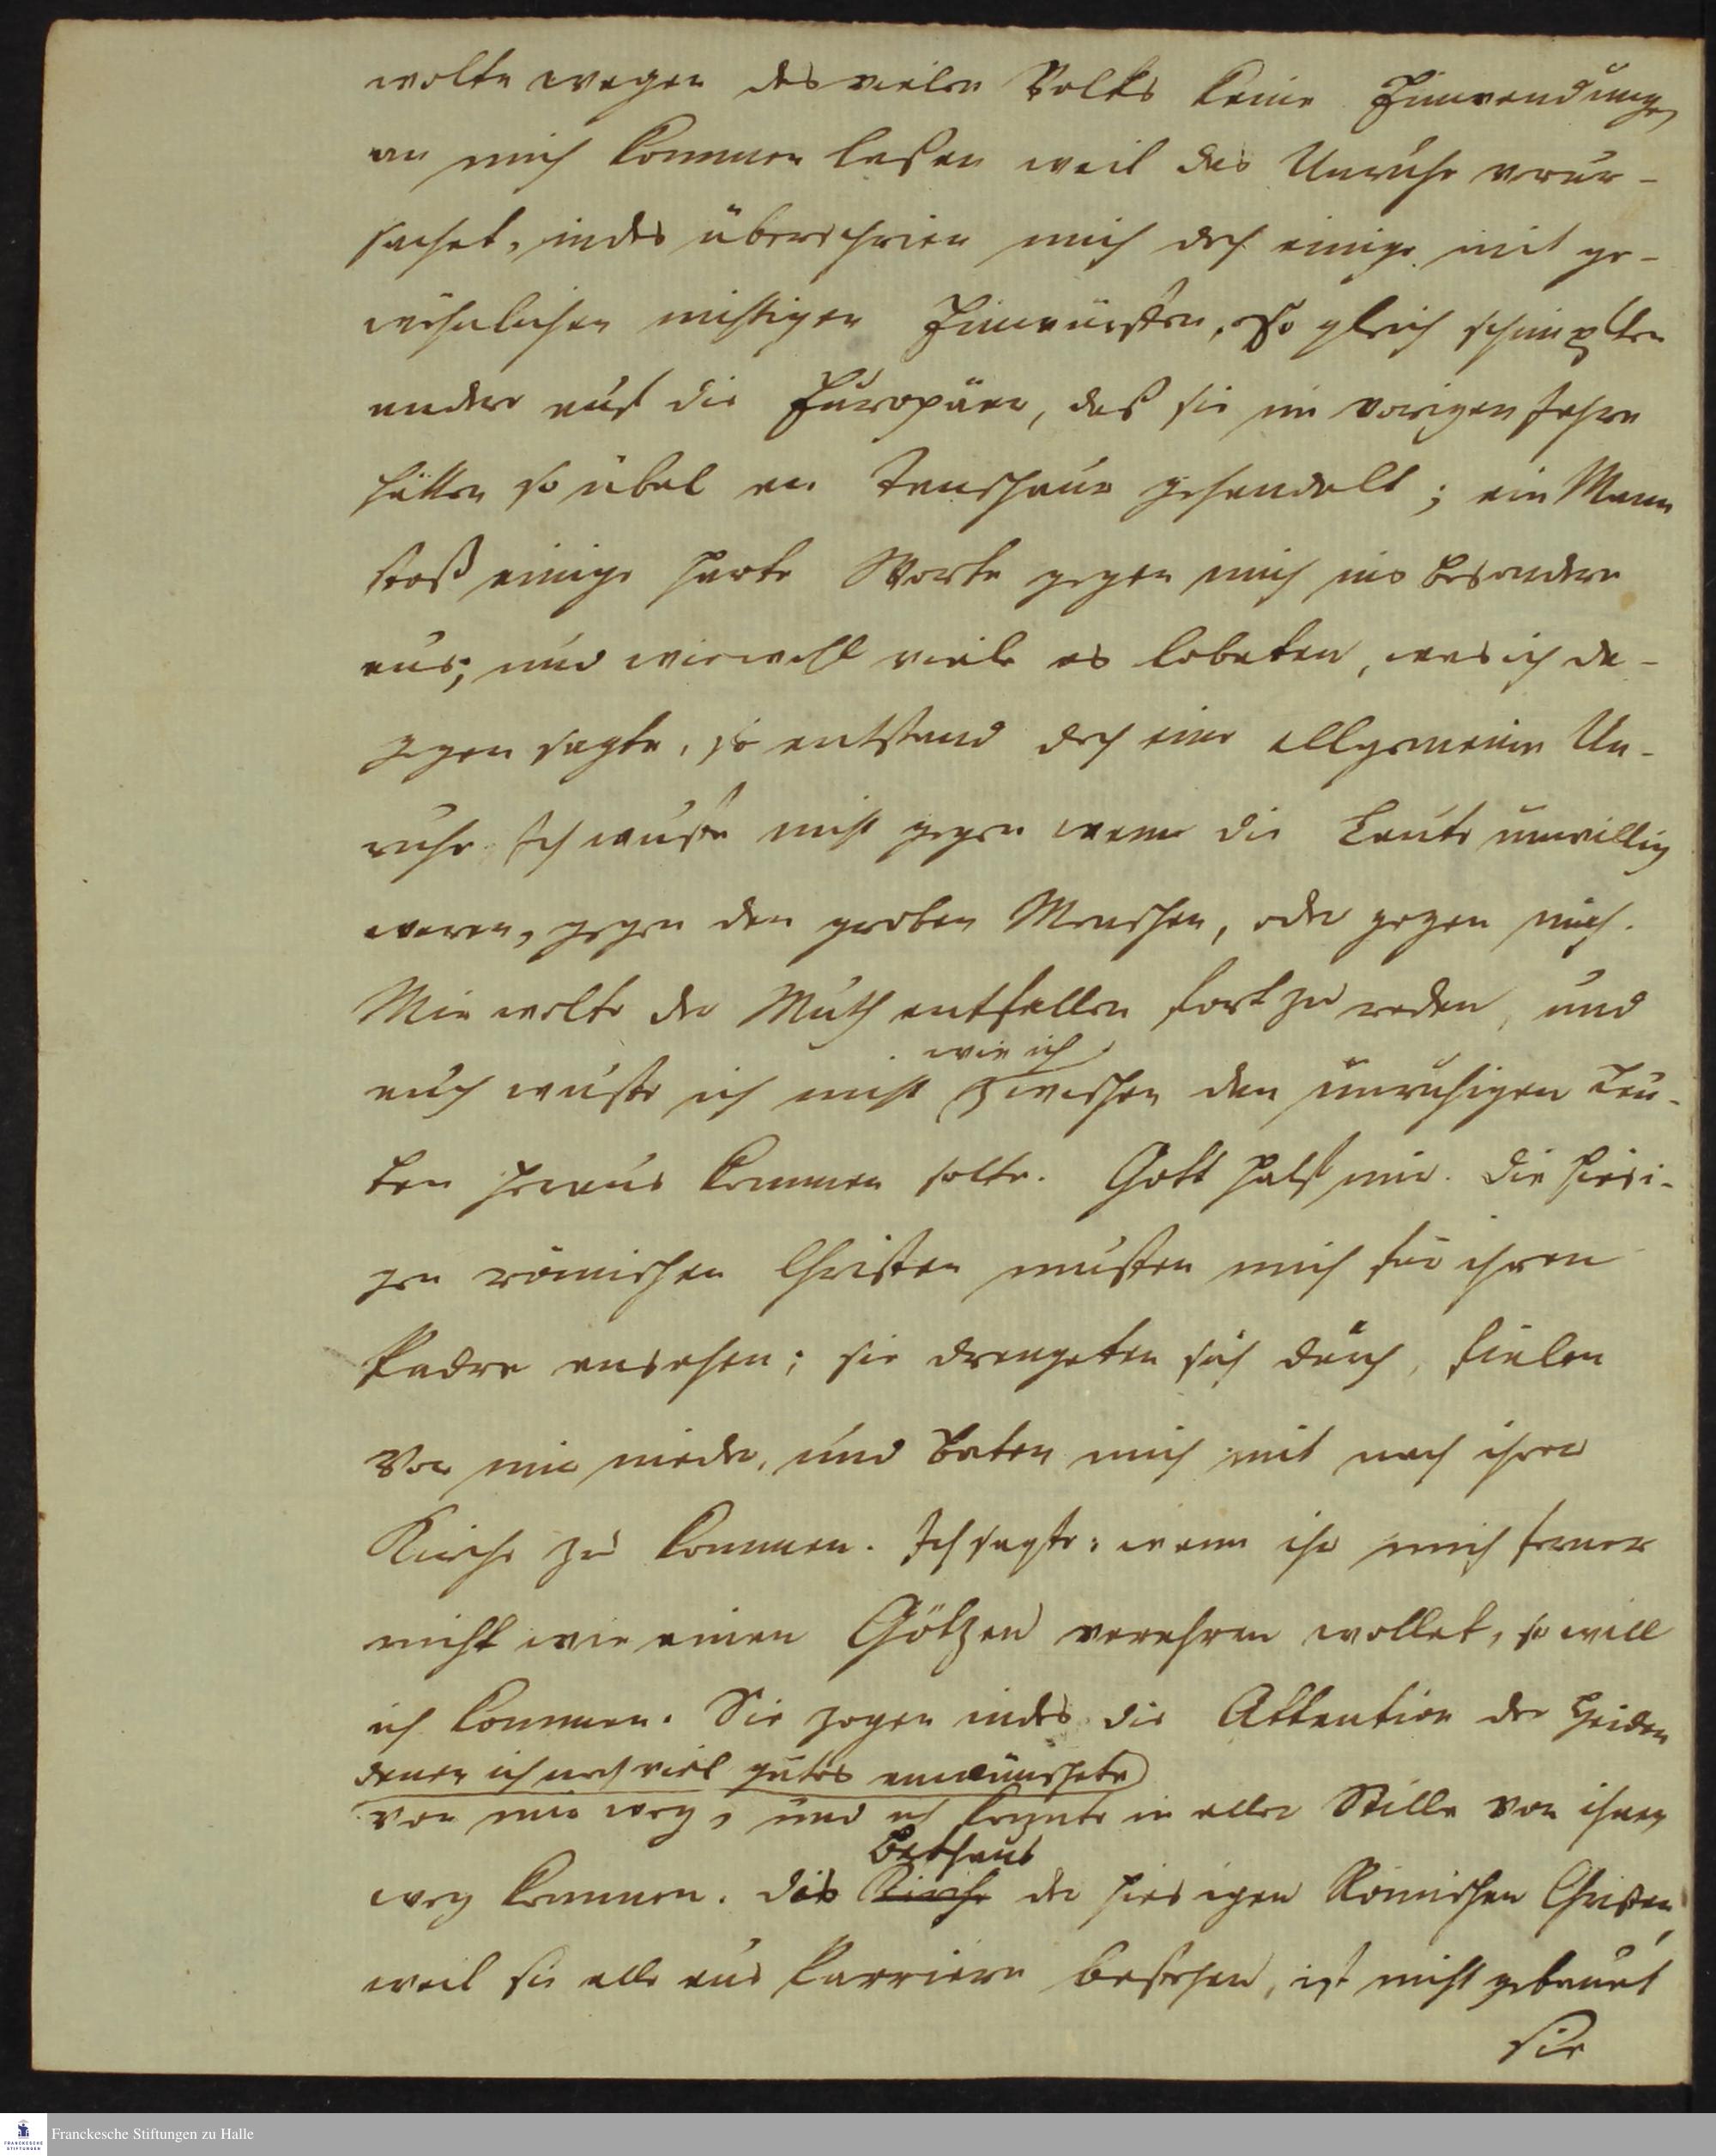 wolte wegen des vielen Volks keine Einwendungen
an mich kommen laßen weil das Unruhe verur-
sachet, indes überschrien mich doch einige mit ge-
wöhnlichen nichtigen Einwürffen, so gleich schimpften
andere auf die Europäer, daß sie im vorigen Jahre
hätten so übel an Tanschaur gehandelt; ein Mann
stoß einige harte Worte gegen mich ins besondere
aus; und wiewohl viele es lobeten, was ich da-
gegen sagte, so entstand doch eine allgemeine Un-
ruhe. Ich wuste nicht gegen wenn die Leute unwillig
waren, gegen den groben Menschen, oder gegen mich.
Mir wolte der Muth entfallen fort zu reden, und
wie ich
auch wuste ich nicht zwischen den unruhigen Leu-
ten heraus kommen solte. Gott half mir. Die hiesi-
gen römischen Christen musten mich für ihren
Padre ansehen; sie drengeten sich durch, fielen
vor mir nieder, und baten mich mit nach ihrer
Kirche zu kommen. Ich sagte: wenn ihr mich ferner
nicht wie einen Götzen verehren wollet, so will
ich kommen. Sie zogen indes die Attention der Heiden
denen ich noch viel gutes anwünschete
von mir weg, und ich konnte in aller Stille von ihnen
Bethaus
weg kommen. das Kirche der hiesigen Römischen Christen
weil sie alle aus Parriern bestehen, ist nicht gebauet
sie
Franckesche Stiftungen zu Halle
FRANCKESCHE
STIFTUNGEN